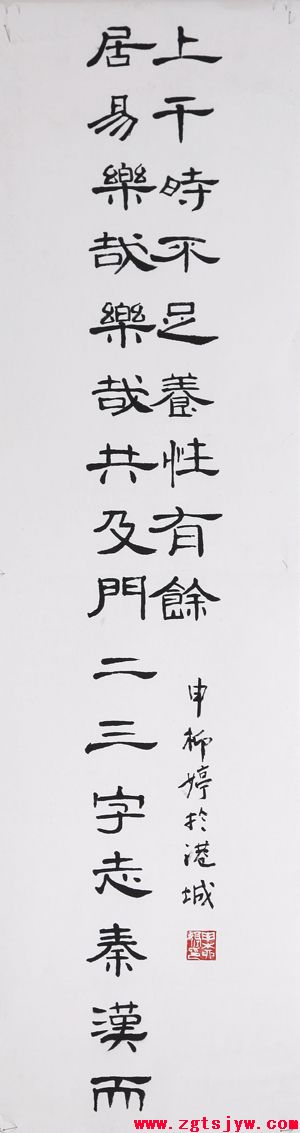 居易樂哉樂哉共及門二三字志秦漢而
上干時不足養性有餘
申柳婷於港城
www.zgtsjyw.com